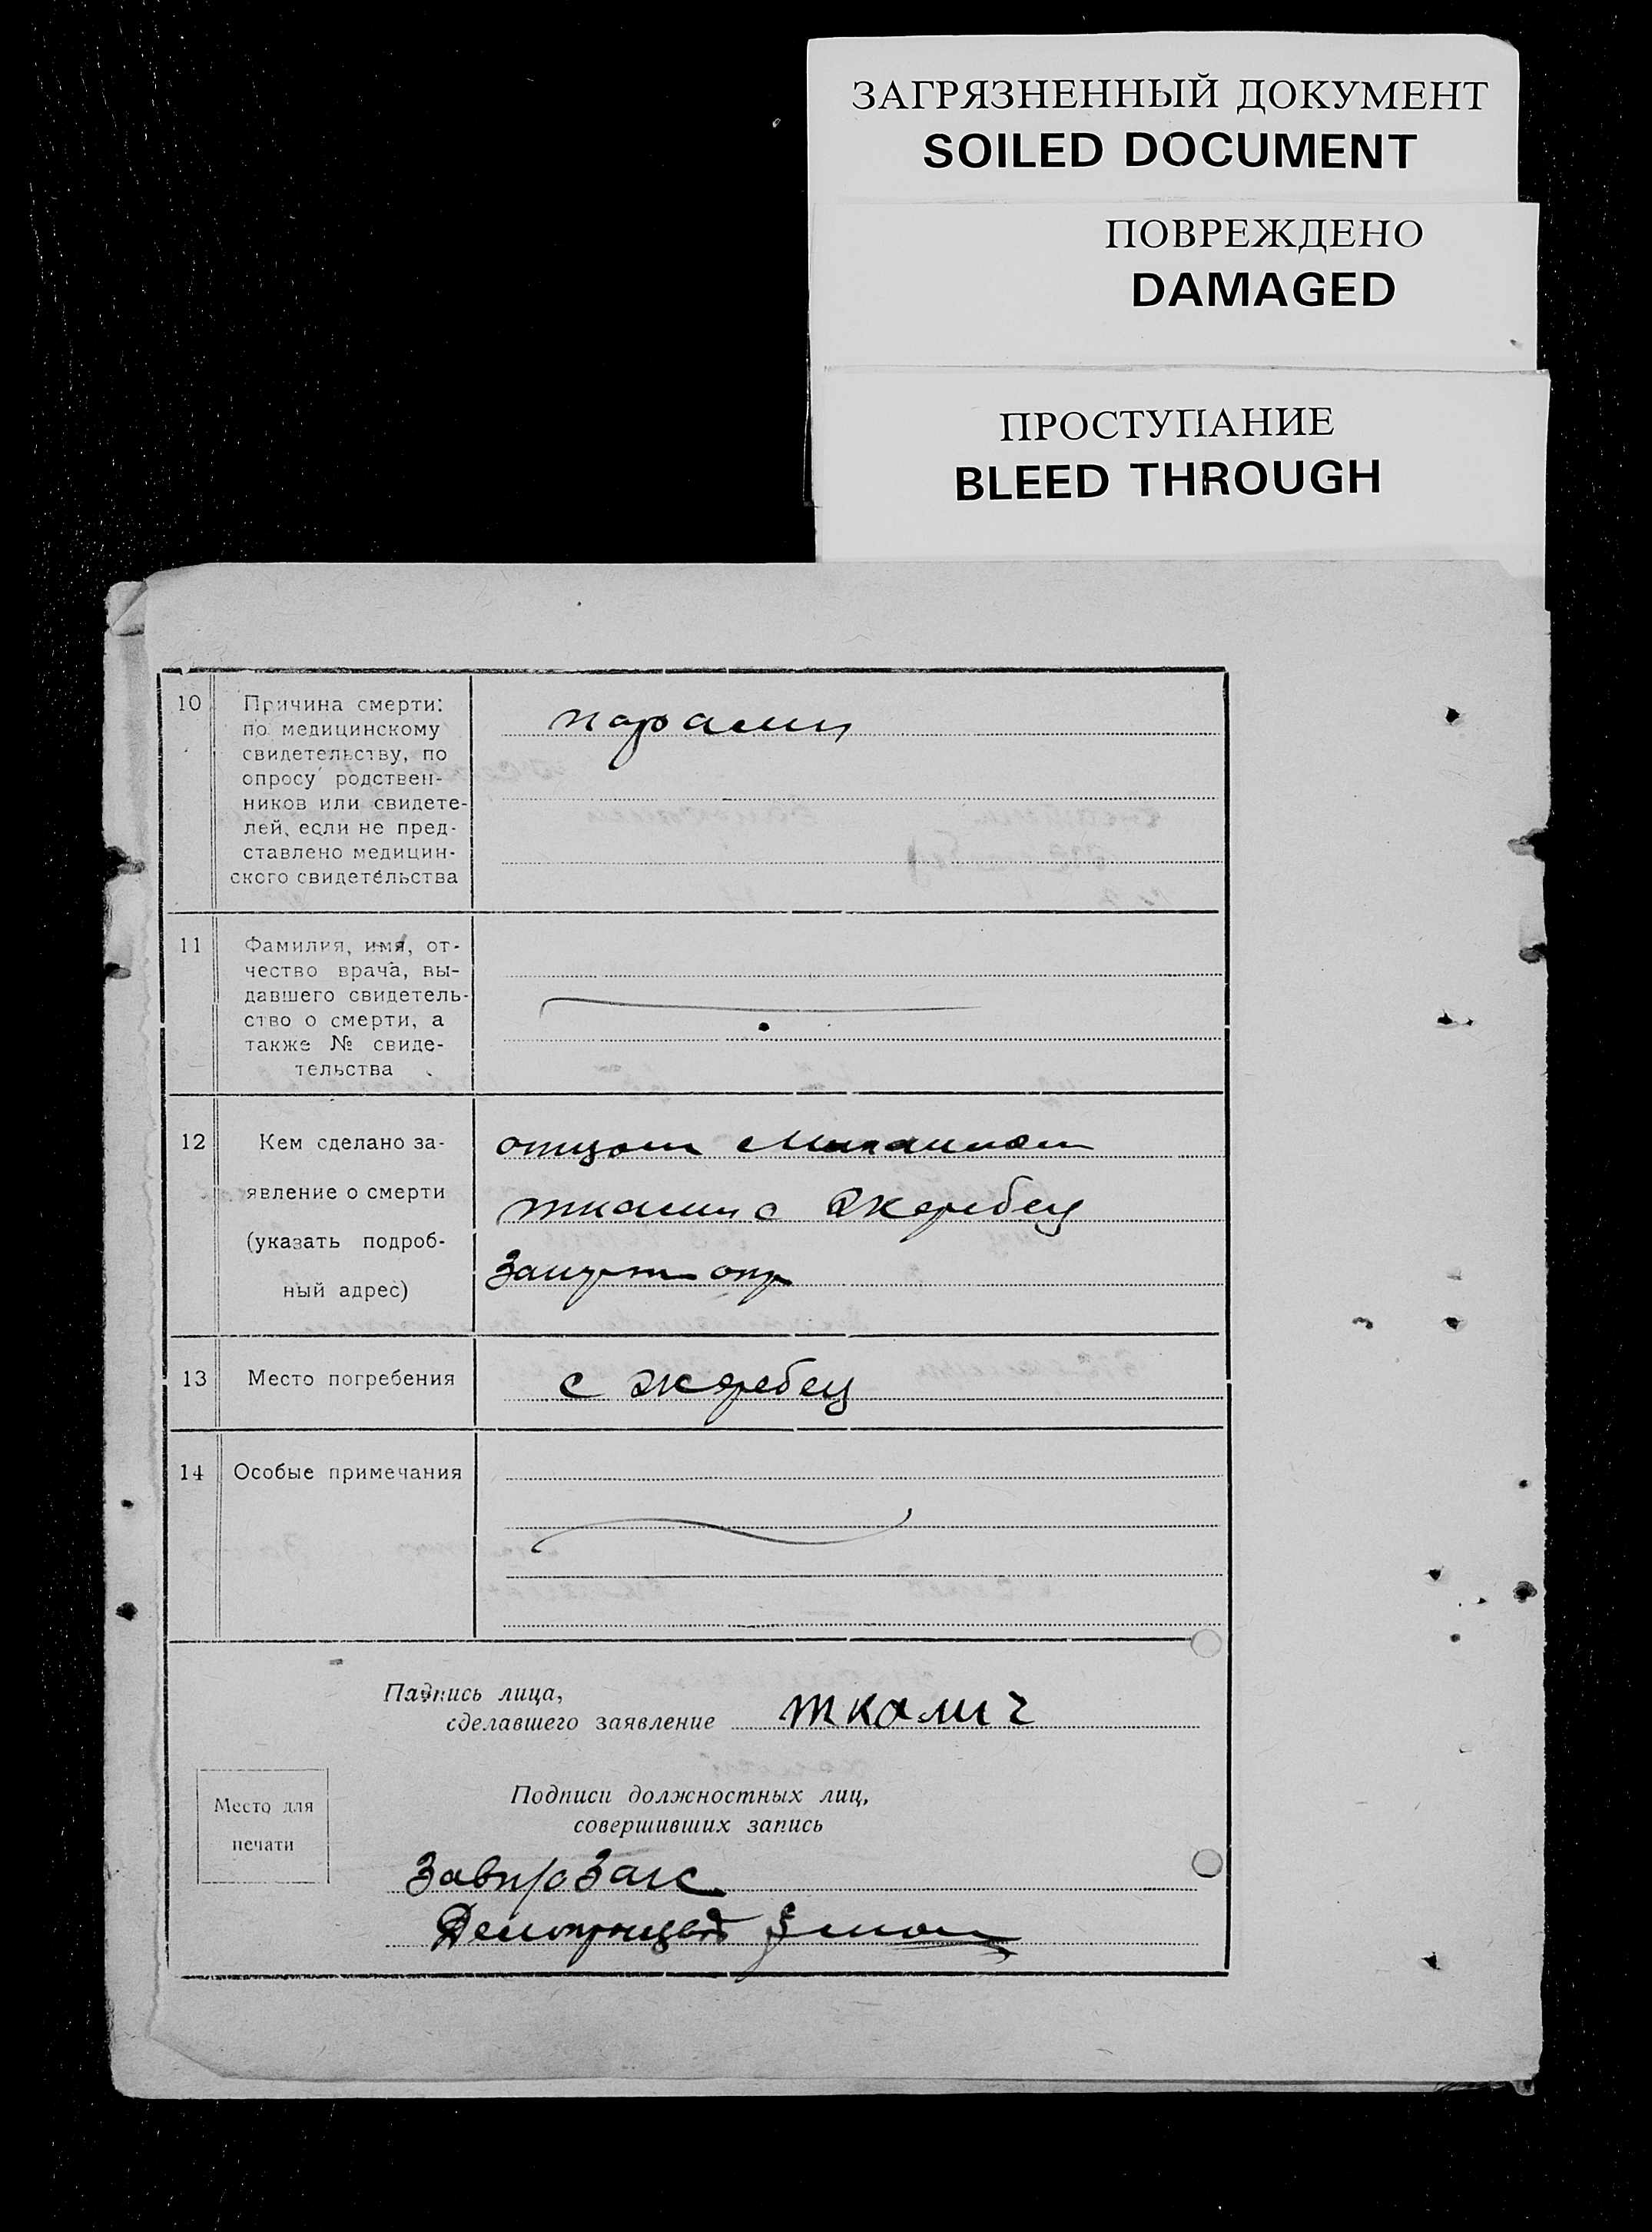 ЗАГРЯЗНЕННЫЙ ДОКУМЕНТ
SOILED DOCUMENT
ПОВРЕЖДЕНО
DAMAGED
ПРОСТУПАНИЕ
BLEED THROUGH
10
Причина смерти:
по медицинскому
свидетельству, по
опросу родствен-
ников или свидете-
лей, если не пред-
ставлено медицин-
ского свидетельства
11
Фамилия, имя, от-
чество врача, вы-
давшего свидетель-
ство о смерти, а
также № свиде-
тельства
12
Кем сделано за-
явление о смерти
(указать подроб-
ный адрес)
отцом
с Жеребец
13
Место погребения
с Жеребец
14
Особые примечания
Подпись лица,
сделавшего заявление
ткалич
Место для
печати
Подписи должностных лиц,
совершивших запись